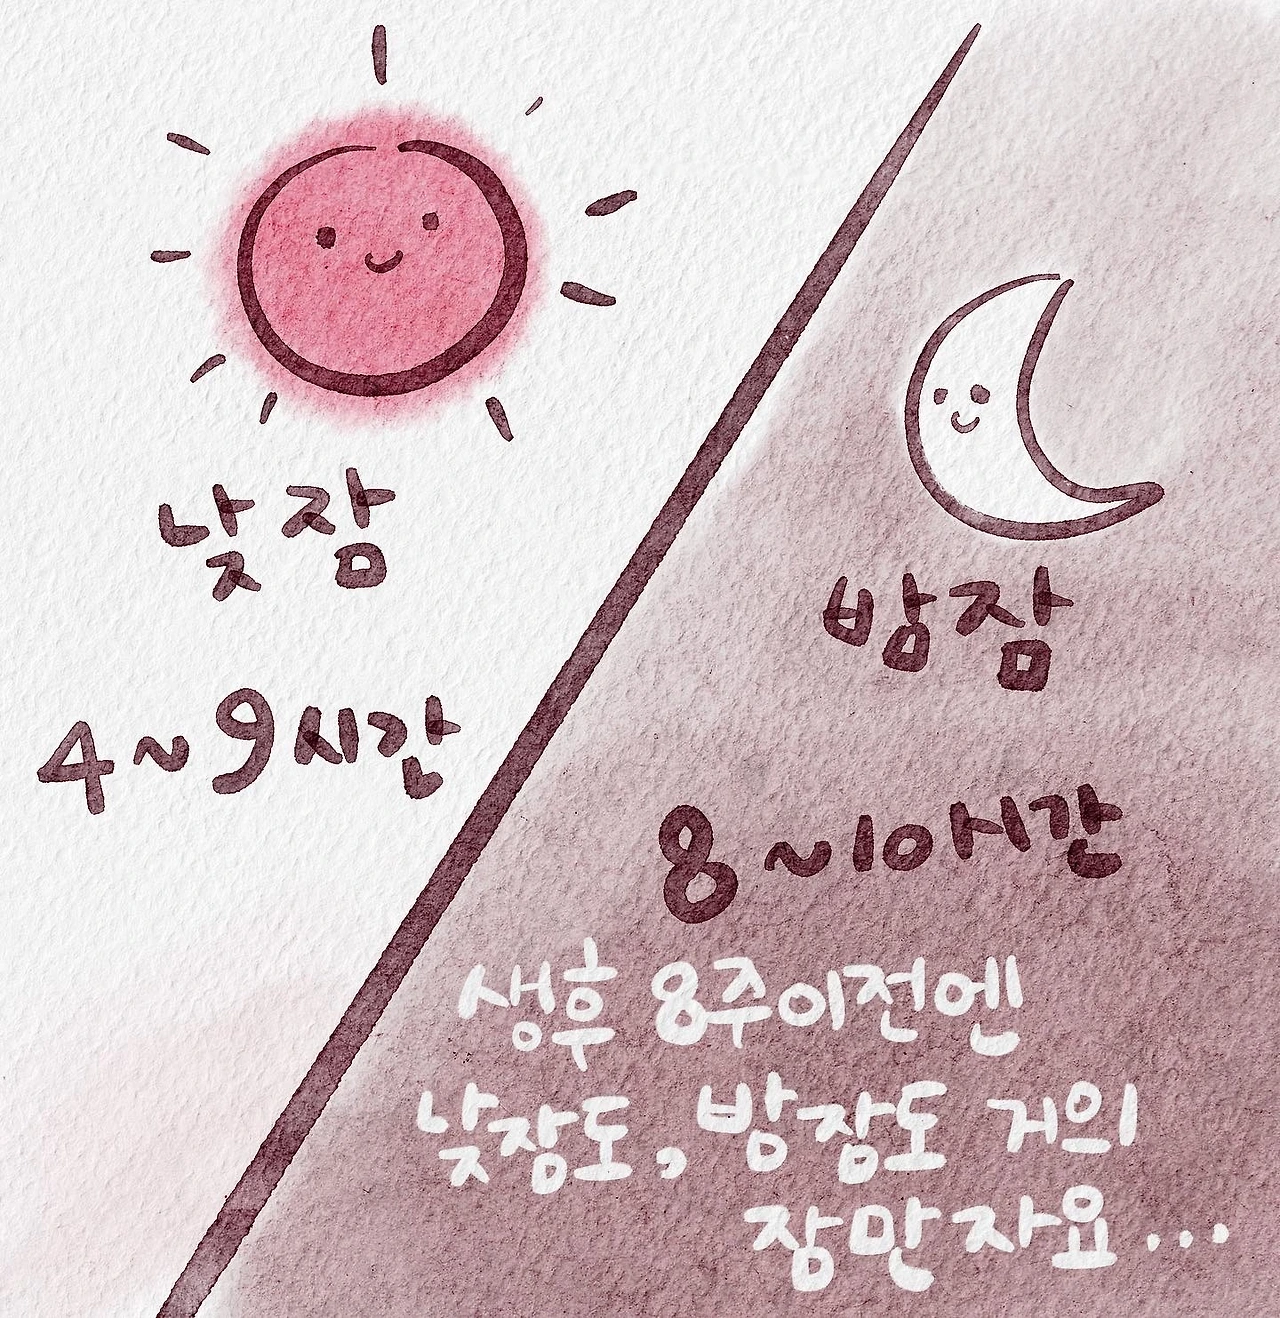 낮잠
4~9시간
밤잠
8~10시간
생후 8주이전엔
낮잠도, 밤잠도 거의
잠만 자요...